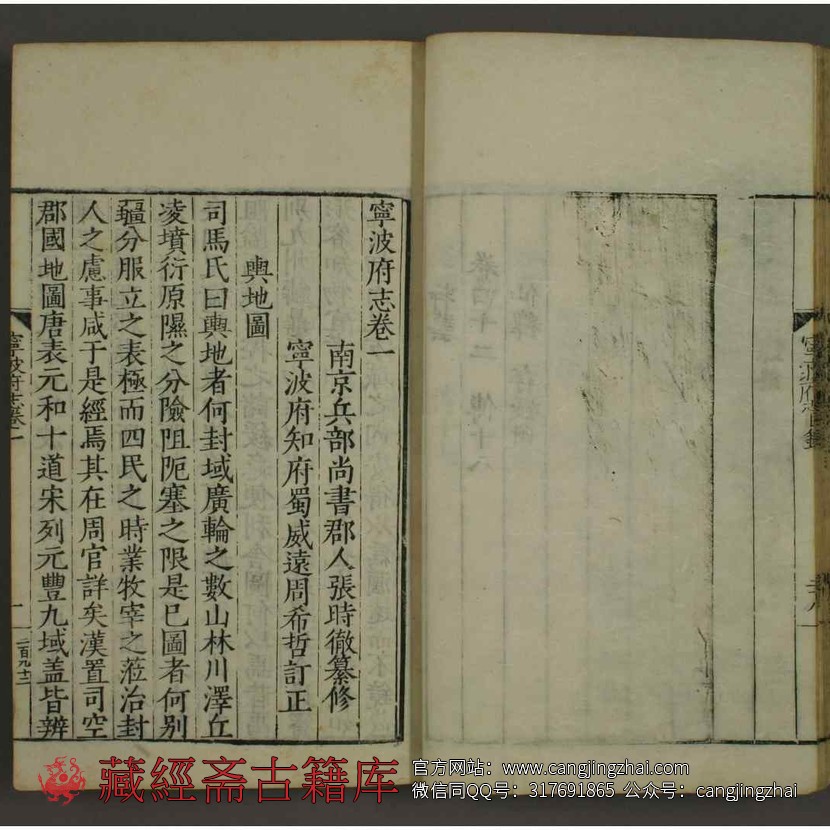 寧波府志卷一
南京兵部尚書郡人張時徹纂修
寧波府知府蜀威遠周希哲訂正
輿地圖
司馬氏曰輿地者何封域廣輪之數山林川澤丘
凌墳衍原隰之分險阻阨塞之限是巳圖者何別
疆分服立之表極而四民之時業牧宰之蒞治封
人之慮事咸于是經焉其在周官詳矣漢置司空
郡國地圖唐表元和十道宋列元豐九域盖皆辨
寧波府志卷一
一
二百九十二
寧波府志目錄
藏經斋古籍库
官方网站：www.cangjingzhai.com
微信同QQ号：317691865 公众号：cangjingzhai